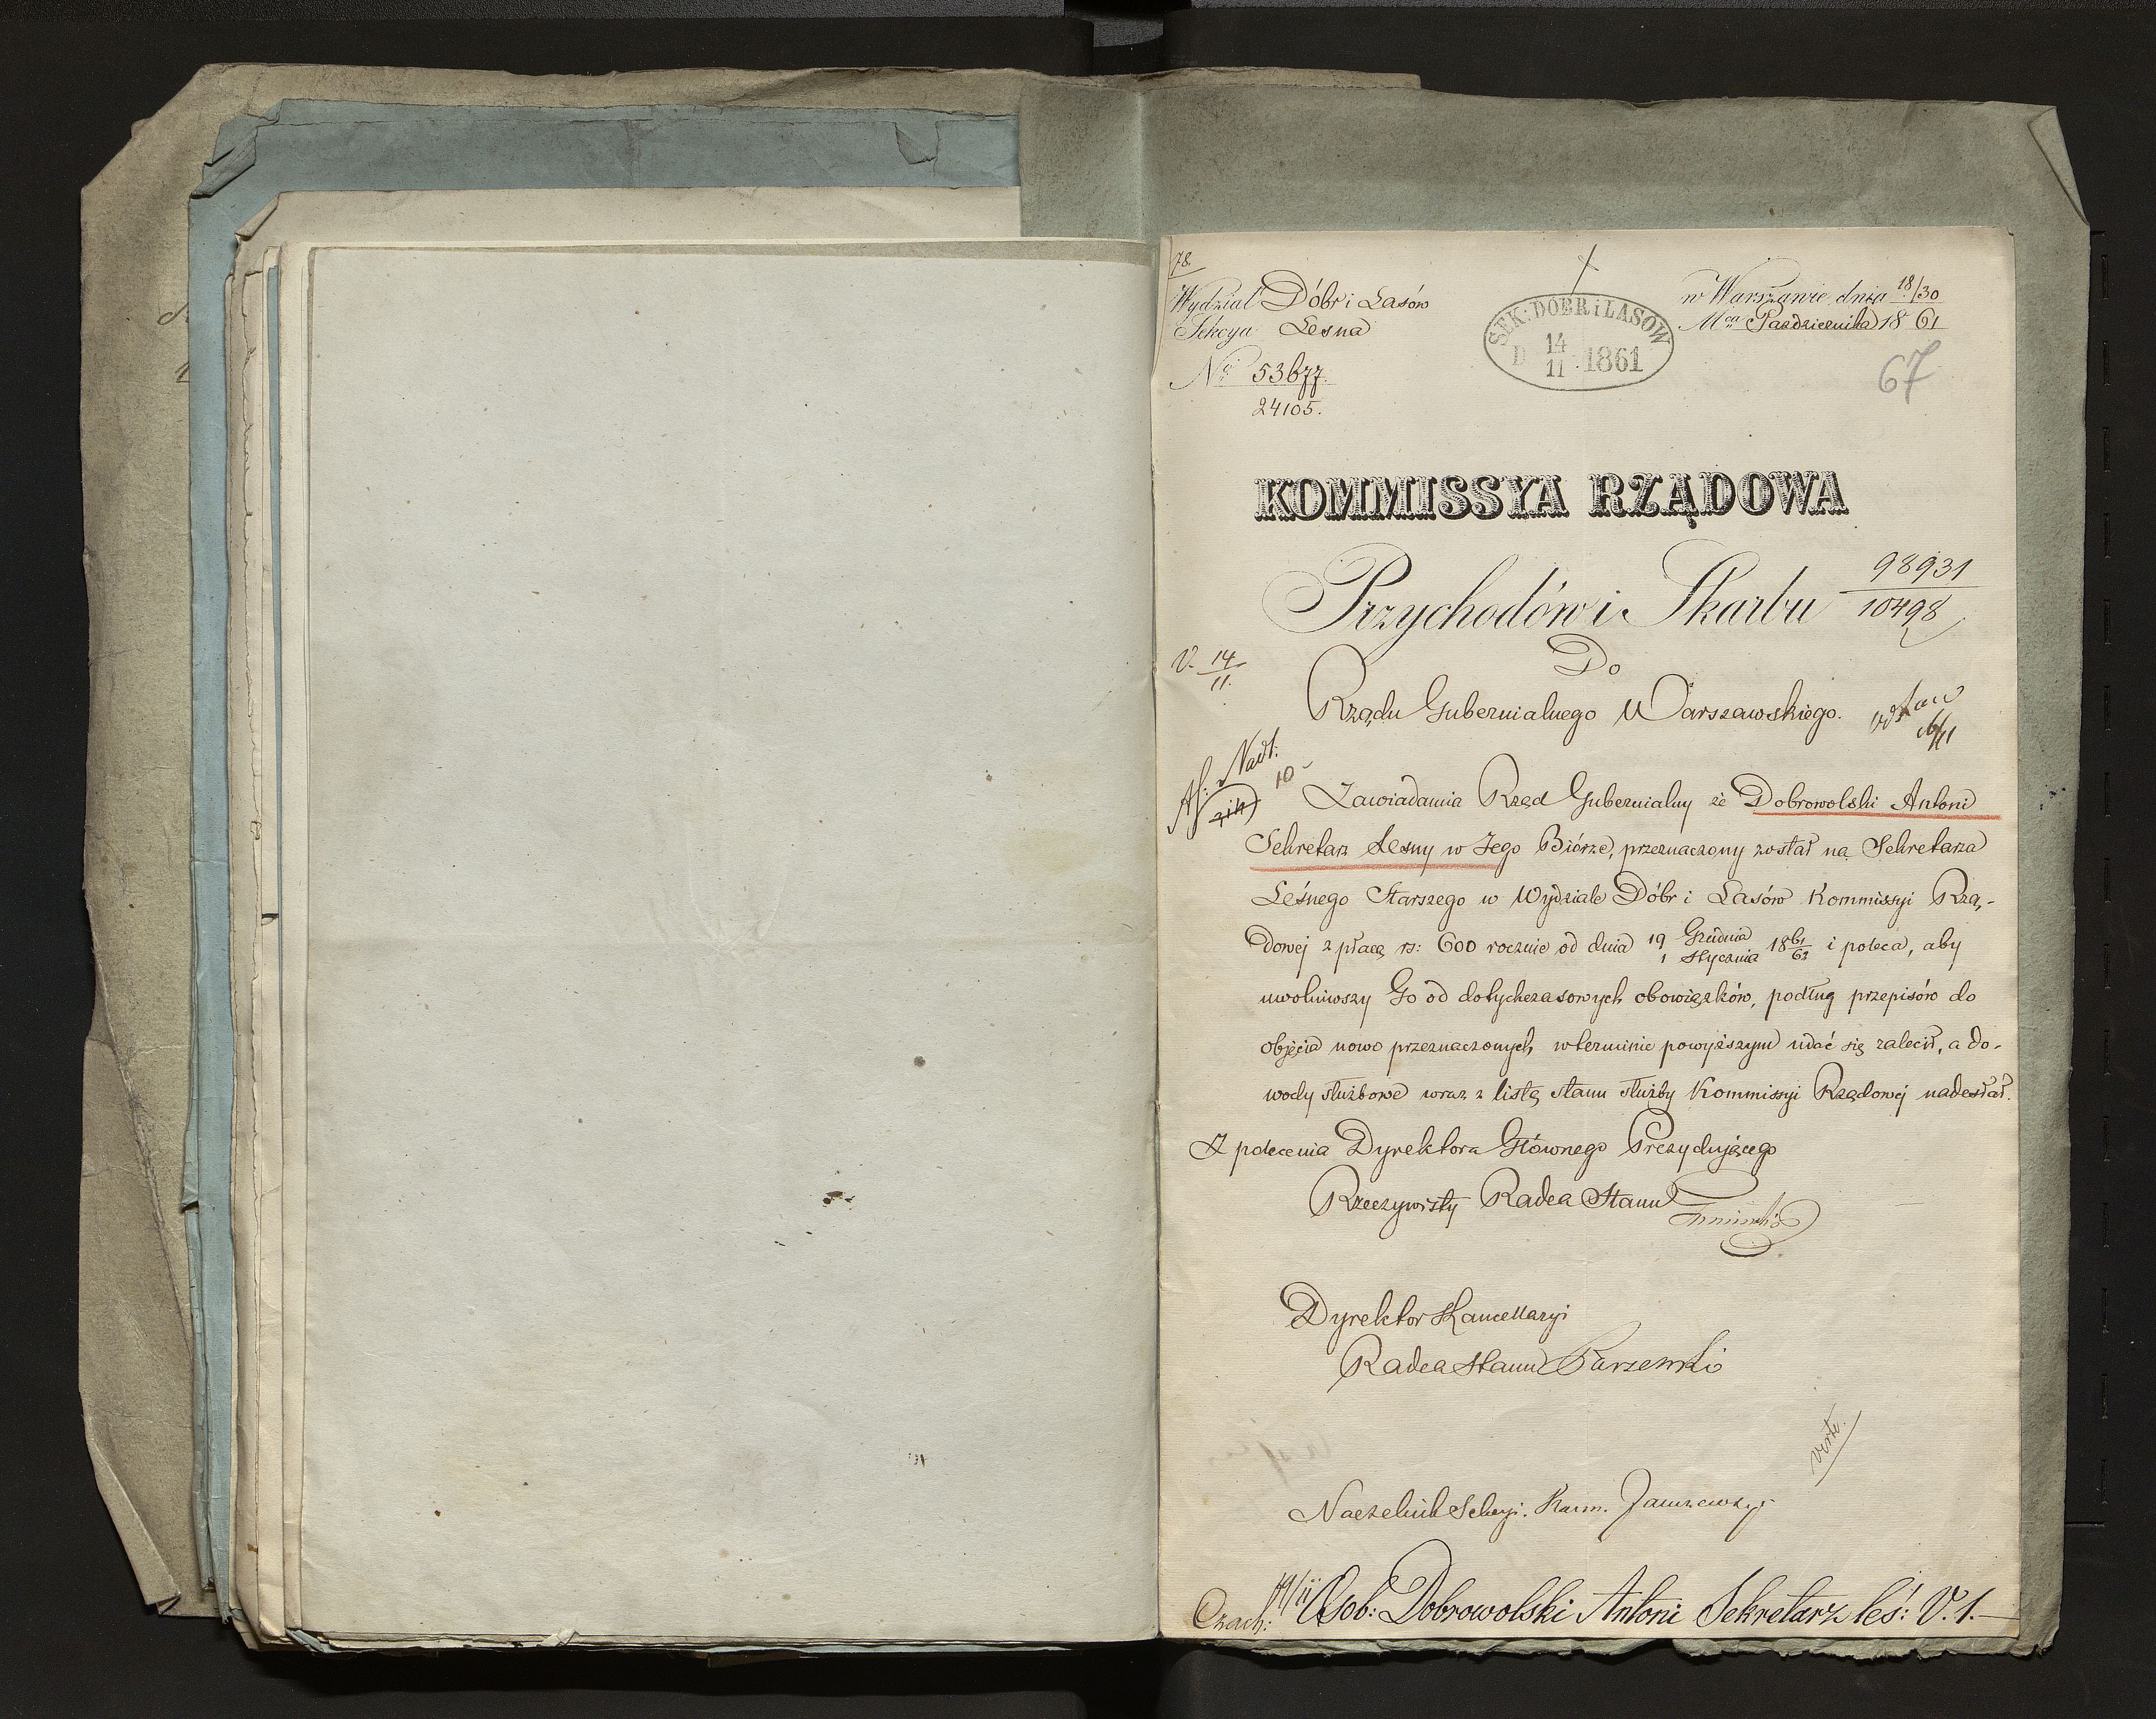 78.
Wydział Dóbr i Lasów
Sekcya Leśna
N° 53677.
24105.
SEK: DOBR i LASÓW
D 14/11 1861
w Warszawie dnia 18/30
Mca Października 1861
67
KOMMISSYA RZĄDOWA
Przychodów i Skarbu
98931
10498
Do
V. 14/11.
Rządu Gubernialnego Warszawskiego.
Zawiadamia Rząd Gubernialny że Dobrowolski Antoni
Sekretarz Leśny w Jego Biórze, przeznaczony został na Sekretarza
Leśnego Starszego w Wydziale Dóbr i Lasów Kommissyi Rzą-
dowej z płacą rs: 600 rocznie od dnia 19 Grudnia / 1 Stycznia 1861/62 i poleca, aby
uwolniwszy Go od dotychczasowych obowiązków, podług przepisów do
objęcia nowo przeznaczonych w terminie powyższym udać się zalecił, a do-
wody służbowe wraz z listą stanu służby Kommissyi Rządowej nadesłał.
Z polecenia Dyrektora Głównego Prezydującego
Rzeczywisty Radca Stanu
Dyrektor Kancellaryi
Radca Stanu
verte.
Naczelnik Sekcyi.
Osob: Dobrowolski Antoni Sekretarz leś: V. 1.